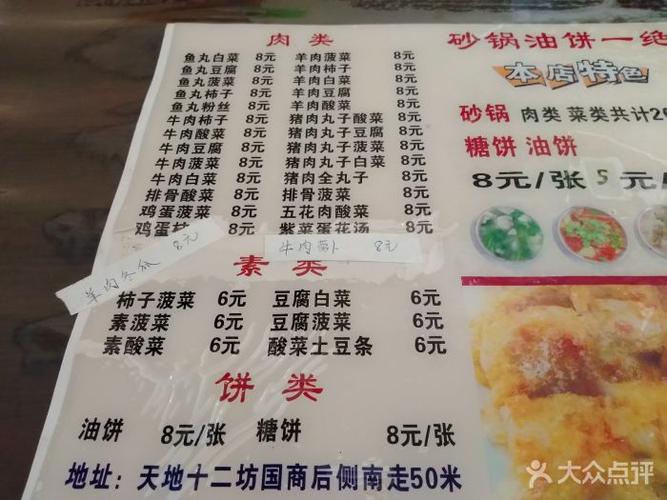 肉类
鱼丸白菜 8元 羊肉菠菜 8元
鱼丸豆腐 8元 羊肉柿子 8元
鱼丸菠菜 8元 羊肉白菜 8元
鱼丸柿子 8元 羊肉豆腐 8元
鱼丸粉丝 8元 羊肉酸菜 8元
牛肉柿子 8元 猪肉丸子酸菜 8元
牛肉酸菜 8元 猪肉丸子豆腐 8元
牛肉豆腐 8元 猪肉丸子菠菜 8元
牛肉菠菜 8元 猪肉丸子白菜 8元
牛肉白菜 8元 猪肉全丸子 8元
排骨酸菜 8元 排骨菠菜 8元
鸡蛋菠菜 8元 五花肉酸菜 8元
鸡蛋柿 8元 紫菜蛋花汤 8元
羊肉冬瓜 8元
牛肉萝卜 8元
素类
柿子菠菜 6元 豆腐白菜 6元
素菠菜 6元 豆腐菠菜 6元
素酸菜 6元 酸菜土豆条 6元
饼类
油饼 8元/张 糖饼 8元/张
地址：天地十二坊国商后侧南走50米
砂锅油饼一绝
本店特色
砂锅 肉类 菜类共计2
糖饼 油饼
8元/张 5元/
大众点评